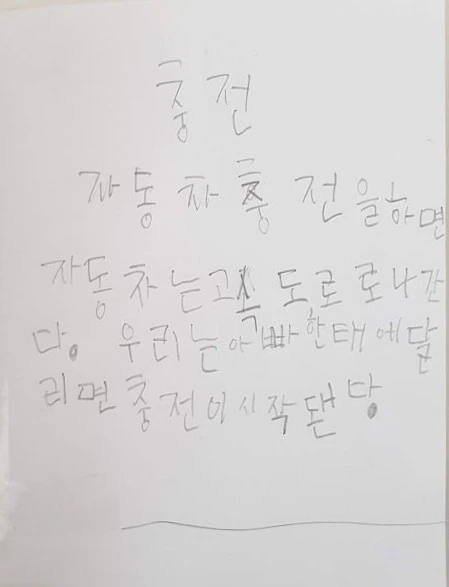 충전
자동차충전을하면
자동차는고속도로로나간
다. 우리는아빠한태에달
리면충전이시작됀당.